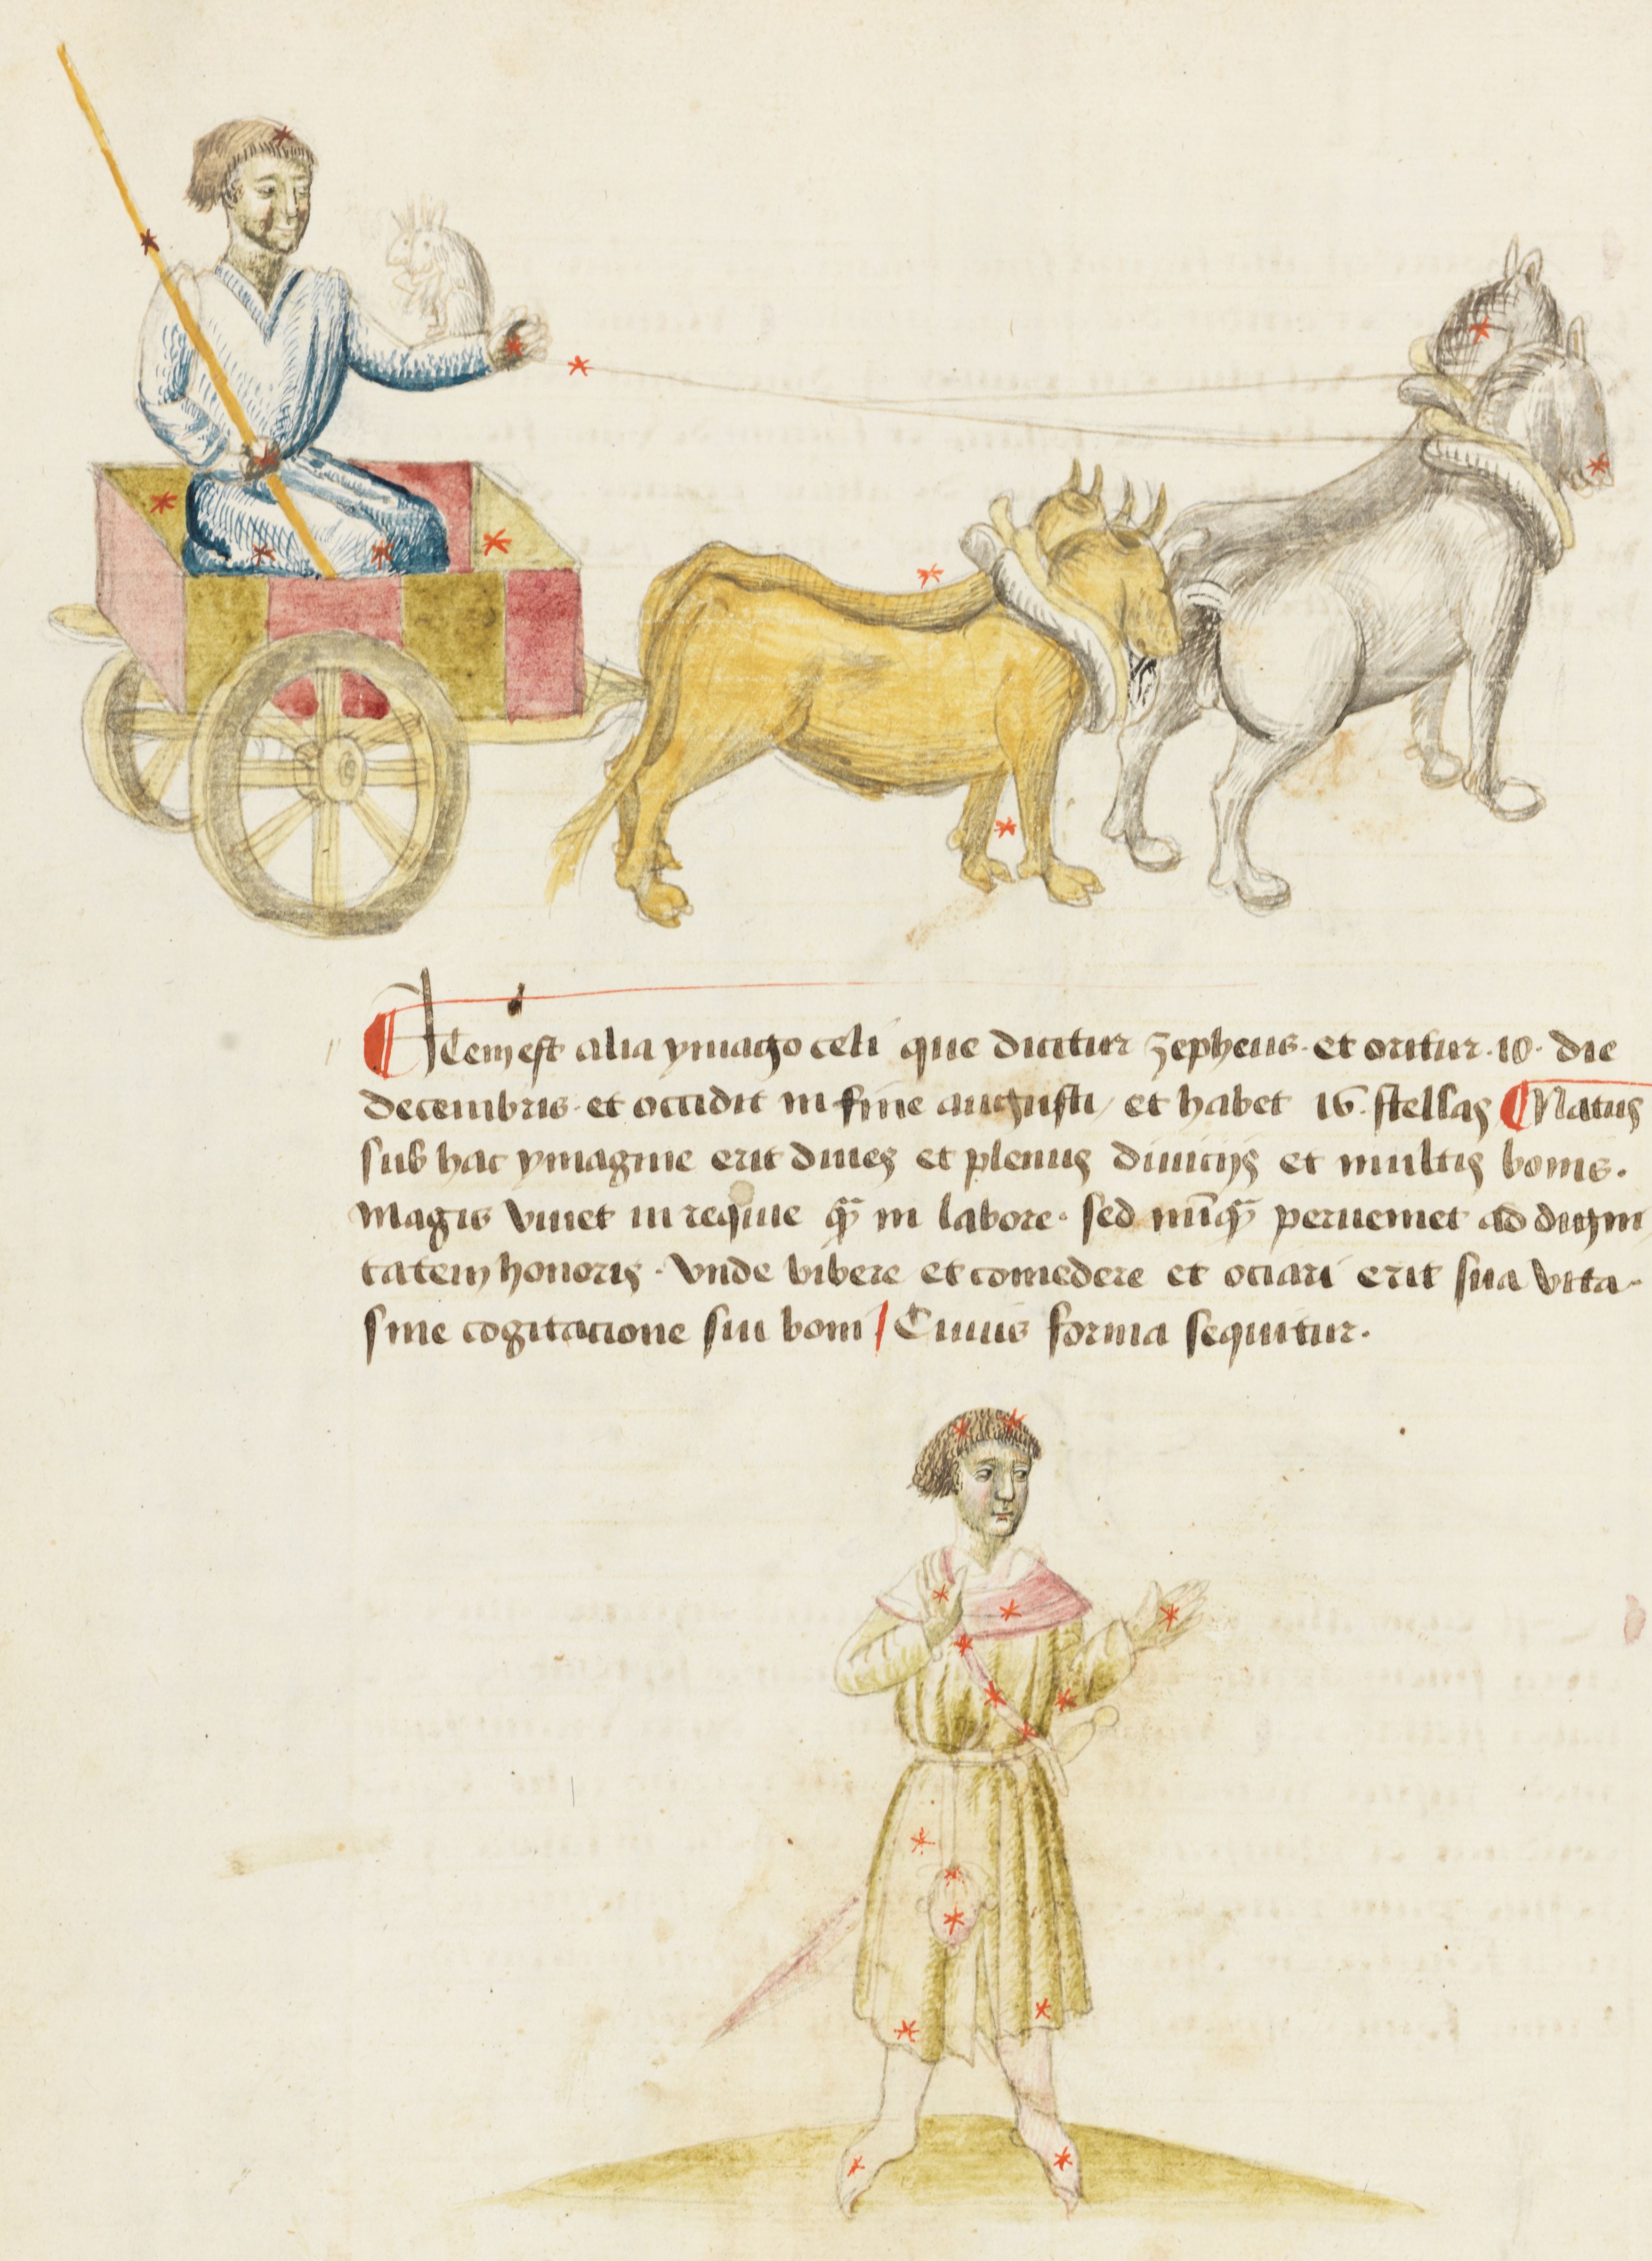 Item est alia ymago celi que dicitur zepheus. et oritur .10. die
decembris. et occidit in fine augusti / et habet 16. stellas Natus
sub hac ymagine erit diues et plenus diuicijs et multis bonis.
magis viuet in requie qͣ̄ in labore. sed nūqͣ̄ perueniet ad digni
tatem honoris. vnde bibere et comedere et ociari erit sua vita.
sine cogitacione sui boni / Cuius forma sequitur.